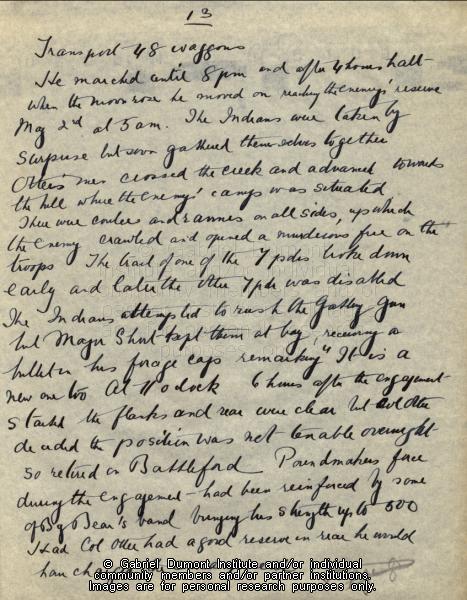 13
Transport 48 waggons
He marched until 8 pm and after 4 hours halt
when the moon rose he moved on reaching the enemys' reserve
May 2nd at 5 am. The Indians were taken by
surprise but soon gathered themselves together
Otters men crossed the creek and advanced towards
the hill where the enemys' camp was situated
There were coulees and ravines on all sides, up which
the enemy crawled and opened a murderous fire on the
troops The trail of one of the 7 pdrs broke down
early and later the other 7 pdr was disabled
The Indians attempted to rush the Gatling Gun
but Major Short kept them at bay, receiving a
bullet in his forage cap remarking "It is a
new one too At 11 oclock 6 hours after the engagement
started the flanks and rear were clear but Col Otter
decided the position was not tenable overnight
so retired on Battleford Poundmakers force
during the engagement had been reinforced by some
of Big Bear's band bringing his strength up to 500
Had Col Otter had a good reserve in rear he would
have
© Gabriel Dumont Institute and/or individual
community members and/or partner institutions.
Images are for personal research purposes only.